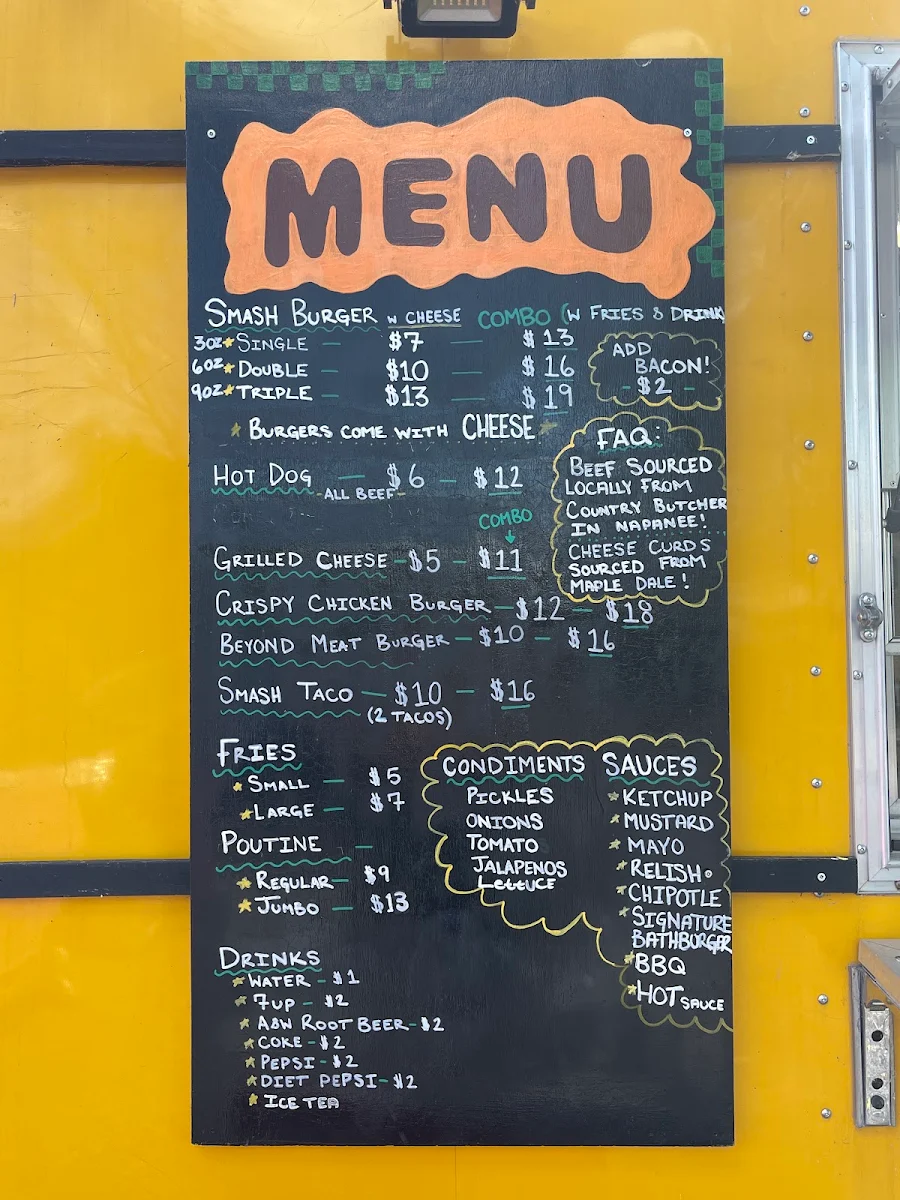 MENU
SMASH BURGER W CHEESE COMBO (W FRIES & DRINK
3OZ SINGLE — $7 — $13
6OZ DOUBLE — $10 — $16
9OZ TRIPLE — $13 — $19
ADD
BACON!
- $2 -
BURGERS COME WITH CHEESE
HOT DOG — $6 — $12
-ALL BEEF-
FAQ:
BEEF SOURCED
LOCALLY FROM
COUNTRY BUTCHER
IN NAPANEE!
CHEESE CURDS
SOURCED FROM
MAPLE DALE!
COMBO
GRILLED CHEESE — $5 — $11
CRISPY CHICKEN BURGER — $12 — $18
BEYOND MEAT BURGER — $10 — $16
SMASH TACO — $10 — $16
(2 TACOS)
FRIES
SMALL — $5
LARGE — $7
POUTINE —
REGULAR — $9
JUMBO — $13
CONDIMENTS
PICKLES
ONIONS
TOMATO
JALAPENOS
LETTUCE
SAUCES
KETCHUP
MUSTARD
MAYO
RELISH
CHIPOTLE
SIGNATURE
BATHBURGER
BBQ
HOT SAUCE
DRINKS
WATER - $1
7UP - $2
A&W ROOT BEER - $2
COKE - $2
PEPSI - $2
DIET PEPSI - $2
ICE TEA